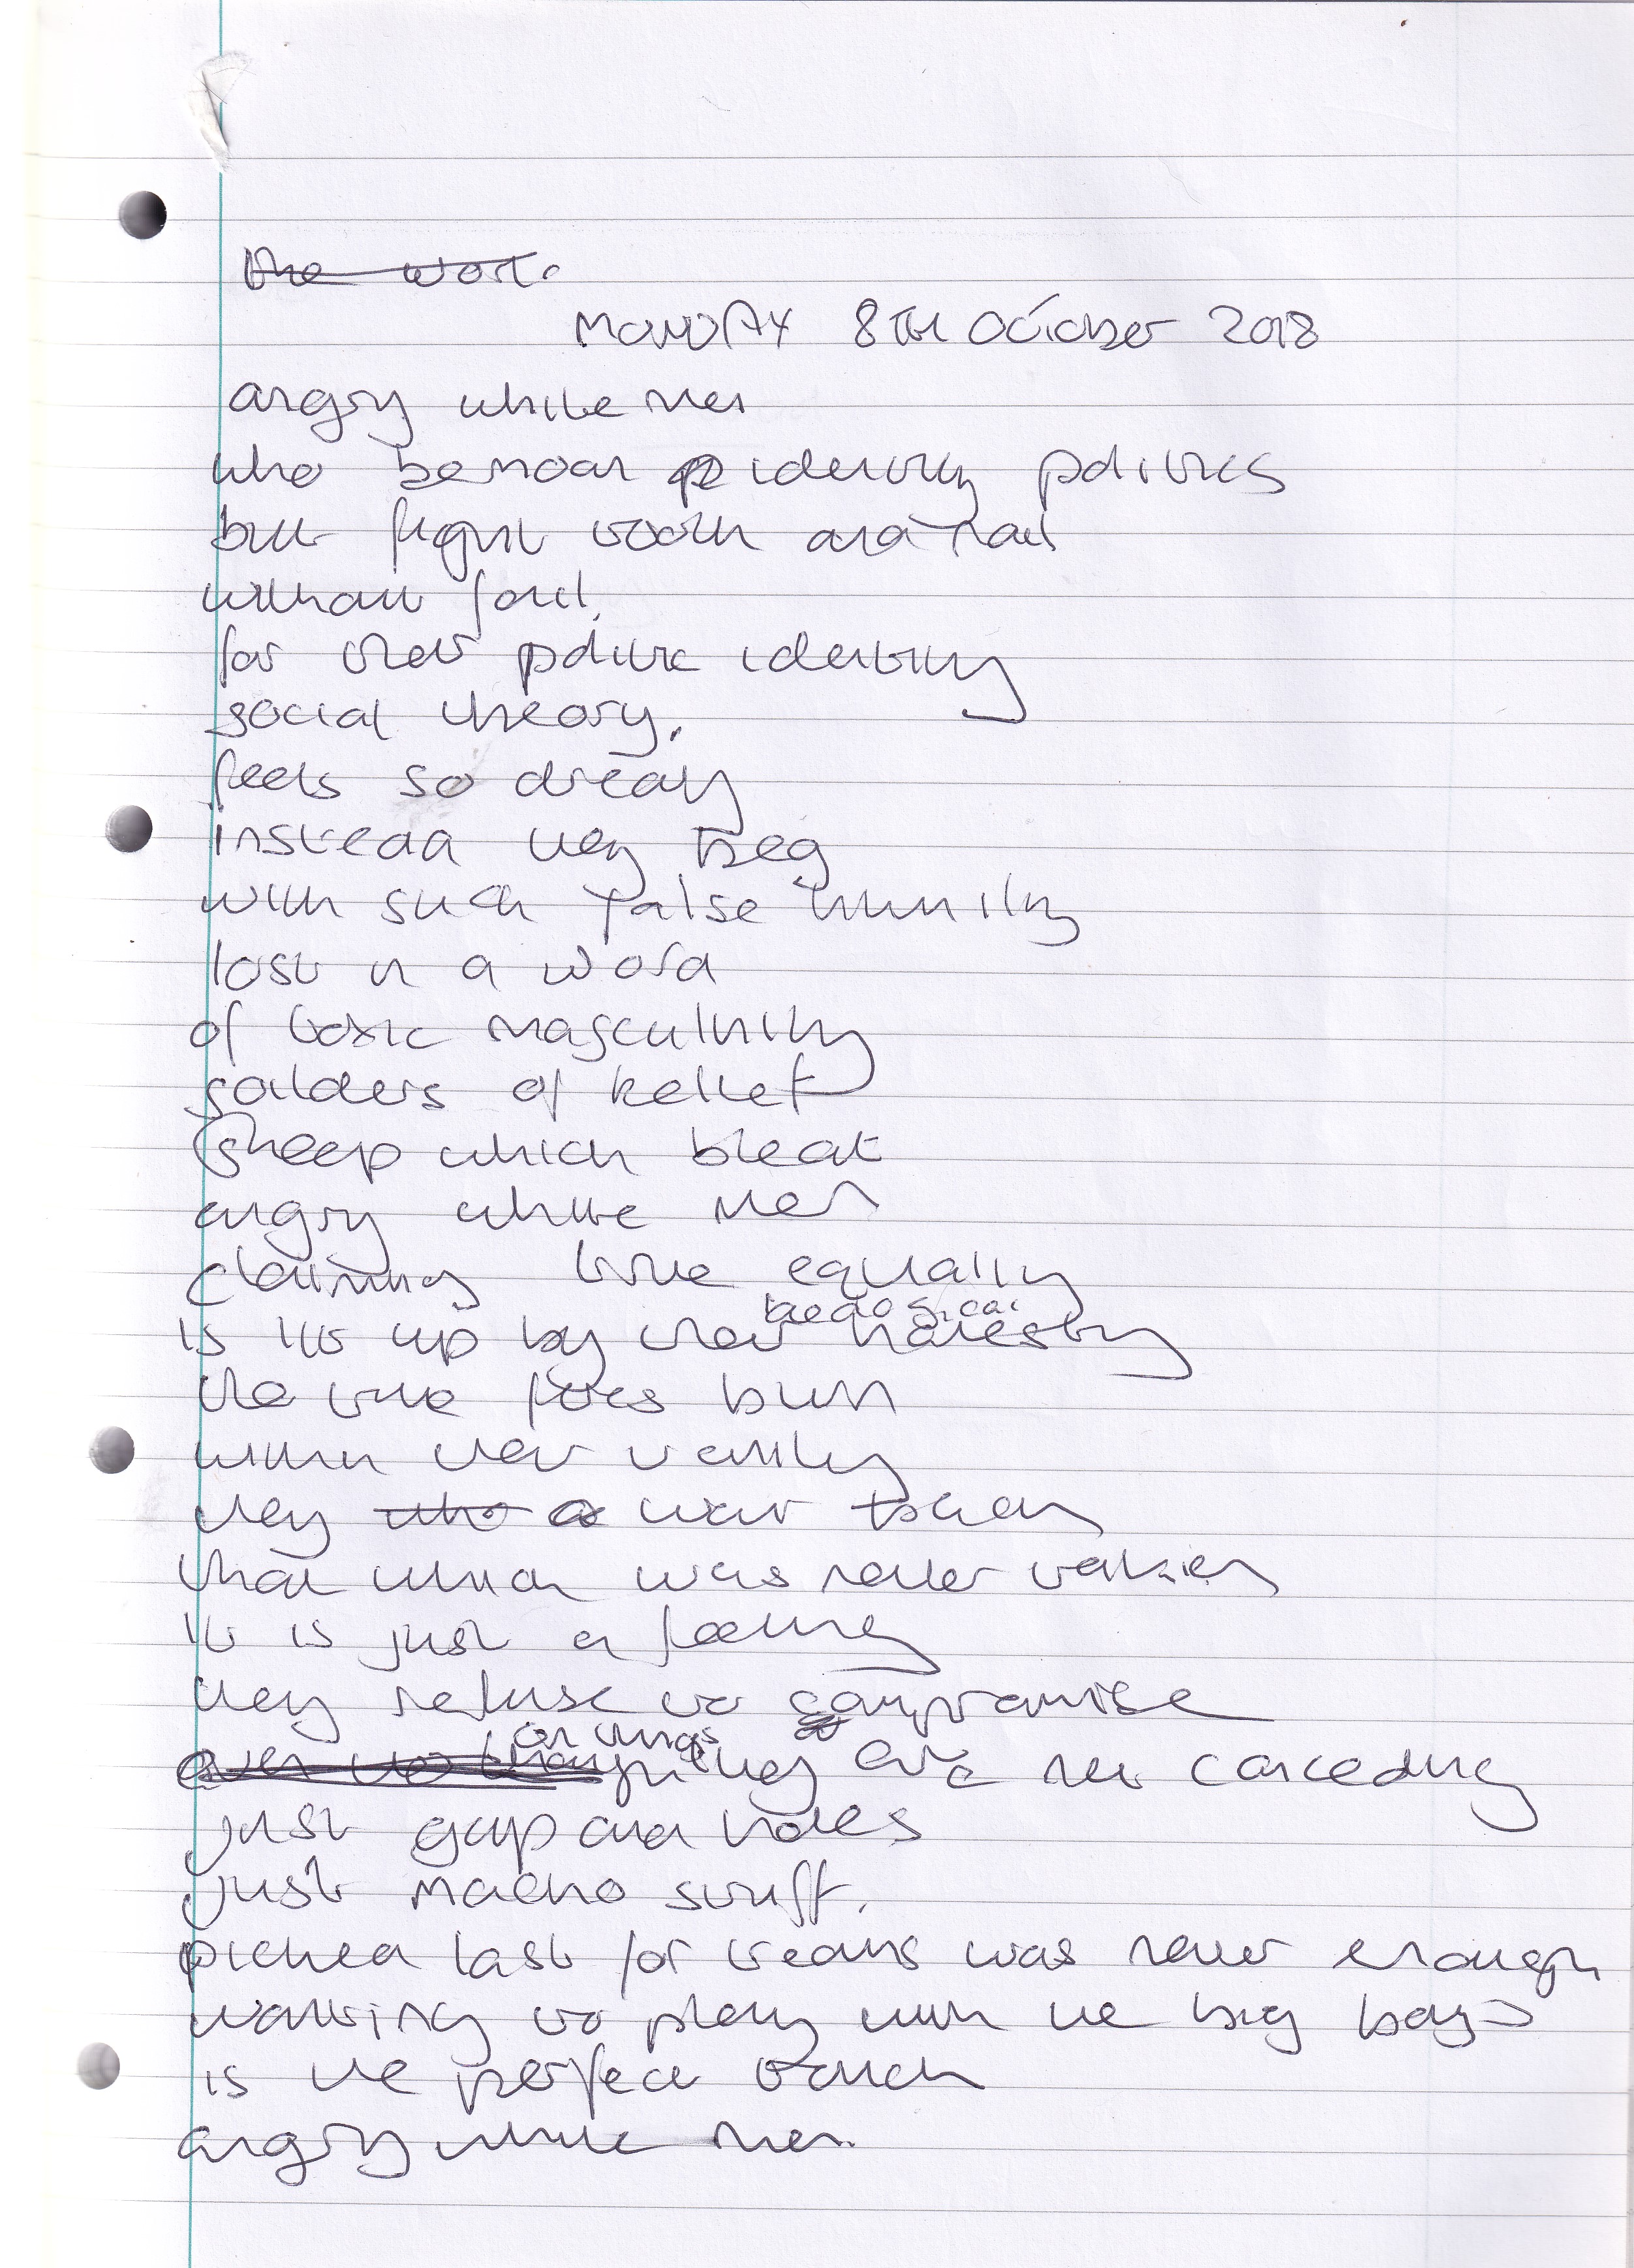 the work.
MONDAY 8TH OCTOBER 2018
angry white men
who bemoan identity politics
but fight tooth and nail
without fail,
for their politic identity
social theory,
feels so dreary
instead they beg
with such false humility
lost in a world
of toxic masculinity
soilders of belief
sheep which bleat
angry white men
claiming true equality
is lit up by their honesty
the true fires burn
within their vanity
they want token
that which was never taken
it is just a feeling
they refuse to compromise
on things they are not conceding
just gap and holes
just macho stuff.
picked last for teams was never enough
wanting to play with the big boys
is the perfect touch
angry white men.